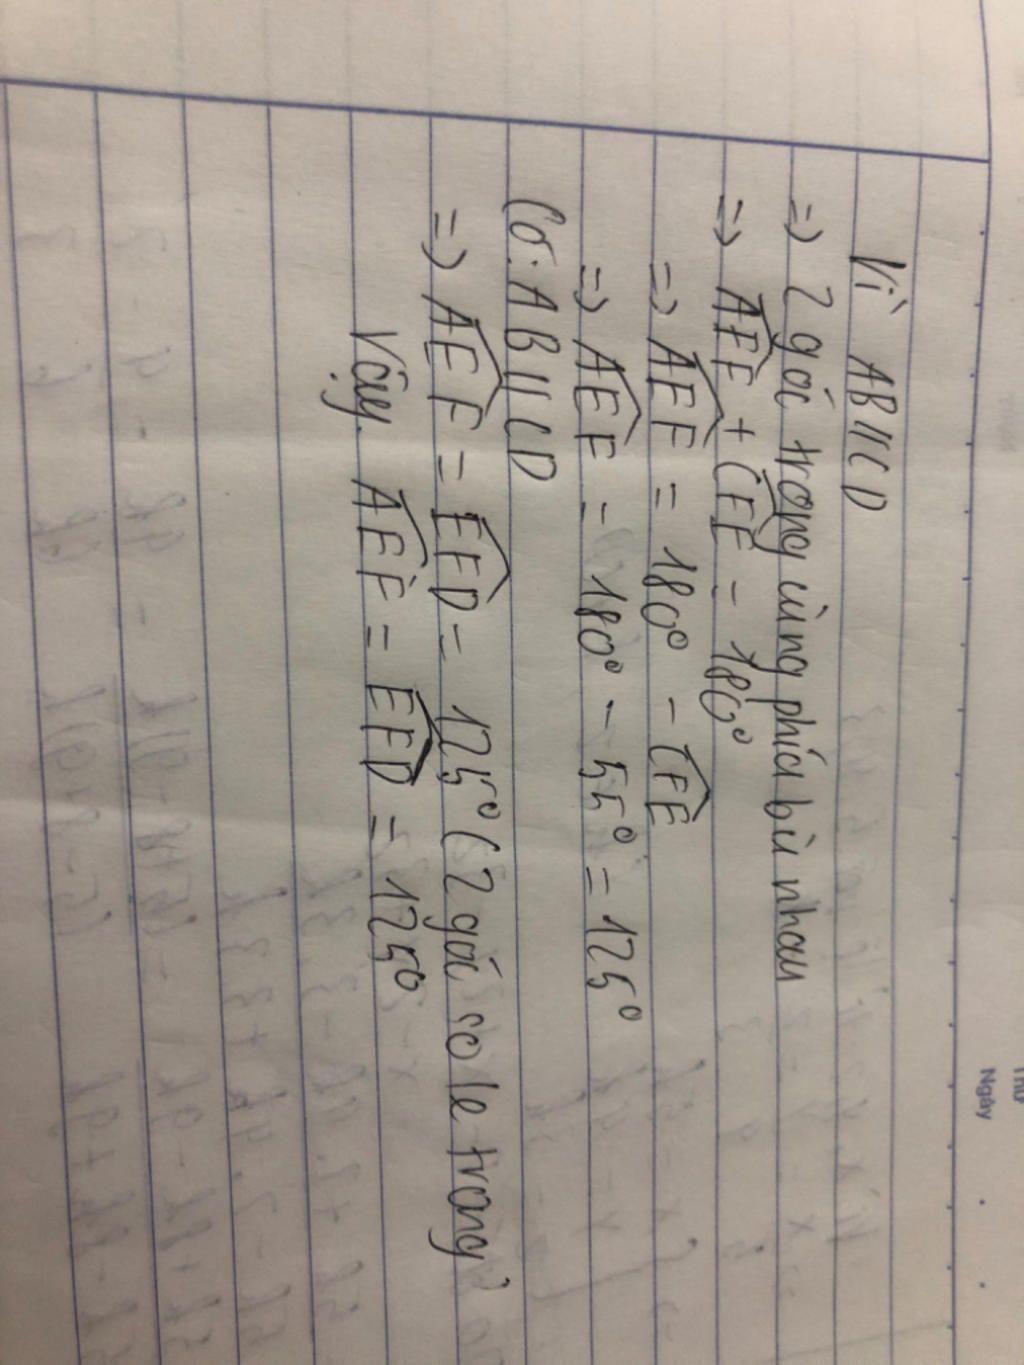 Ngày
Vì AB//CD
=> 2 góc trong cùng phía bù nhau
=> AEF + CFE = 180°
=> AEF = 180° - CFE
=> AEF = 180° - 55° = 125°
Có: AB//CD
=> AEF = EFD = 125° (2 góc so le trong)
Vậy. AEF = EFD = 125°